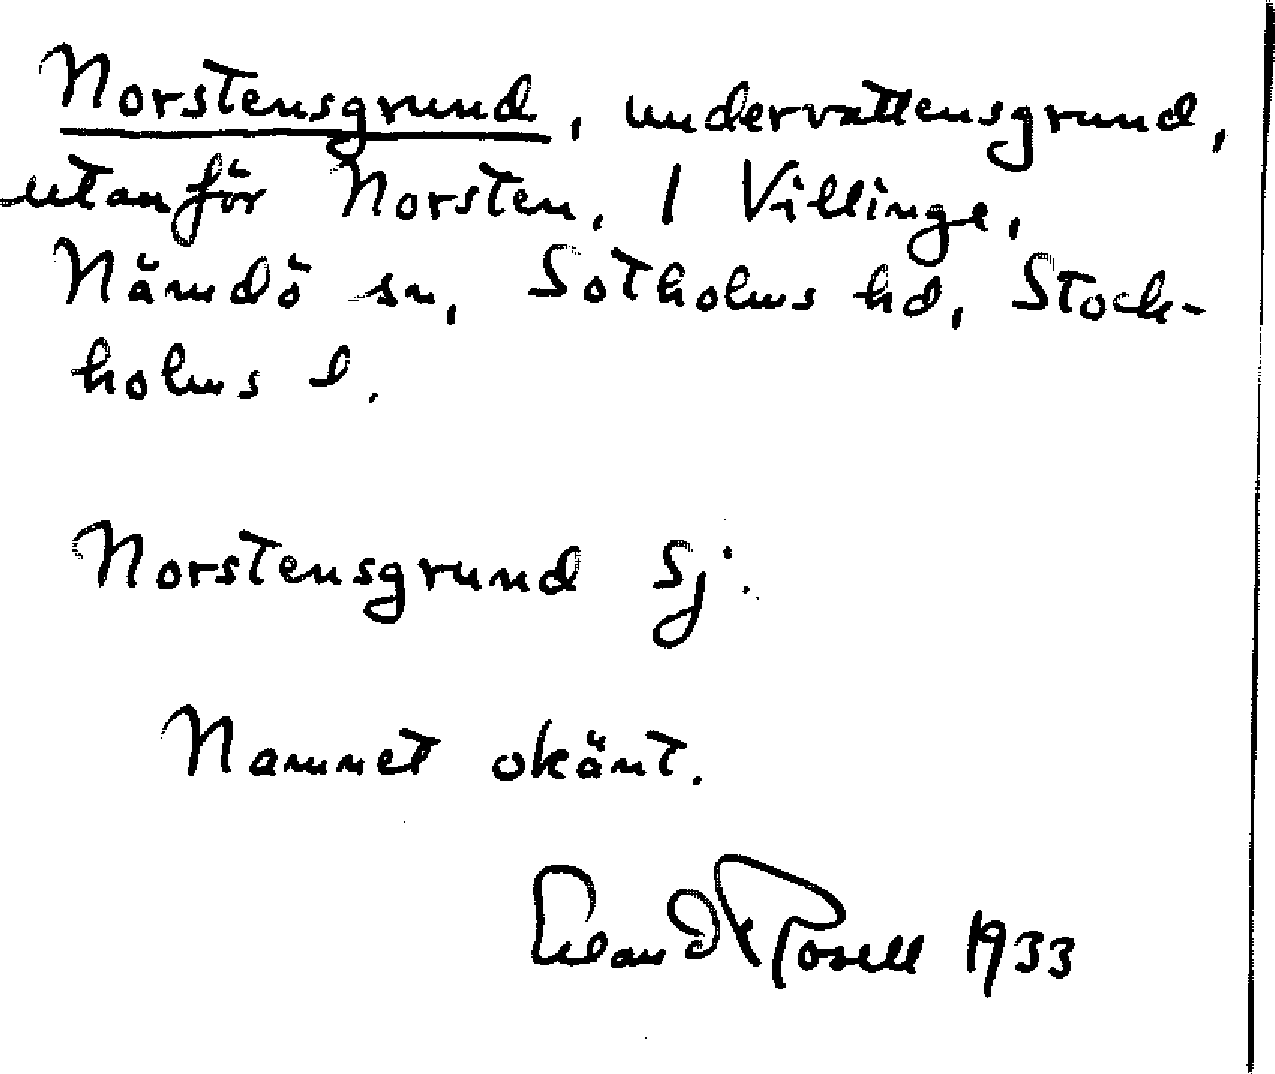 Norstensgrund, undervattensgrund,
utanför Norsten, l Villinge,
Nämdö sn, Sotholms hd, Stock-
holms l.
Norstensgrund Sj.
Namnet okänt.
Erland Rosell 1933